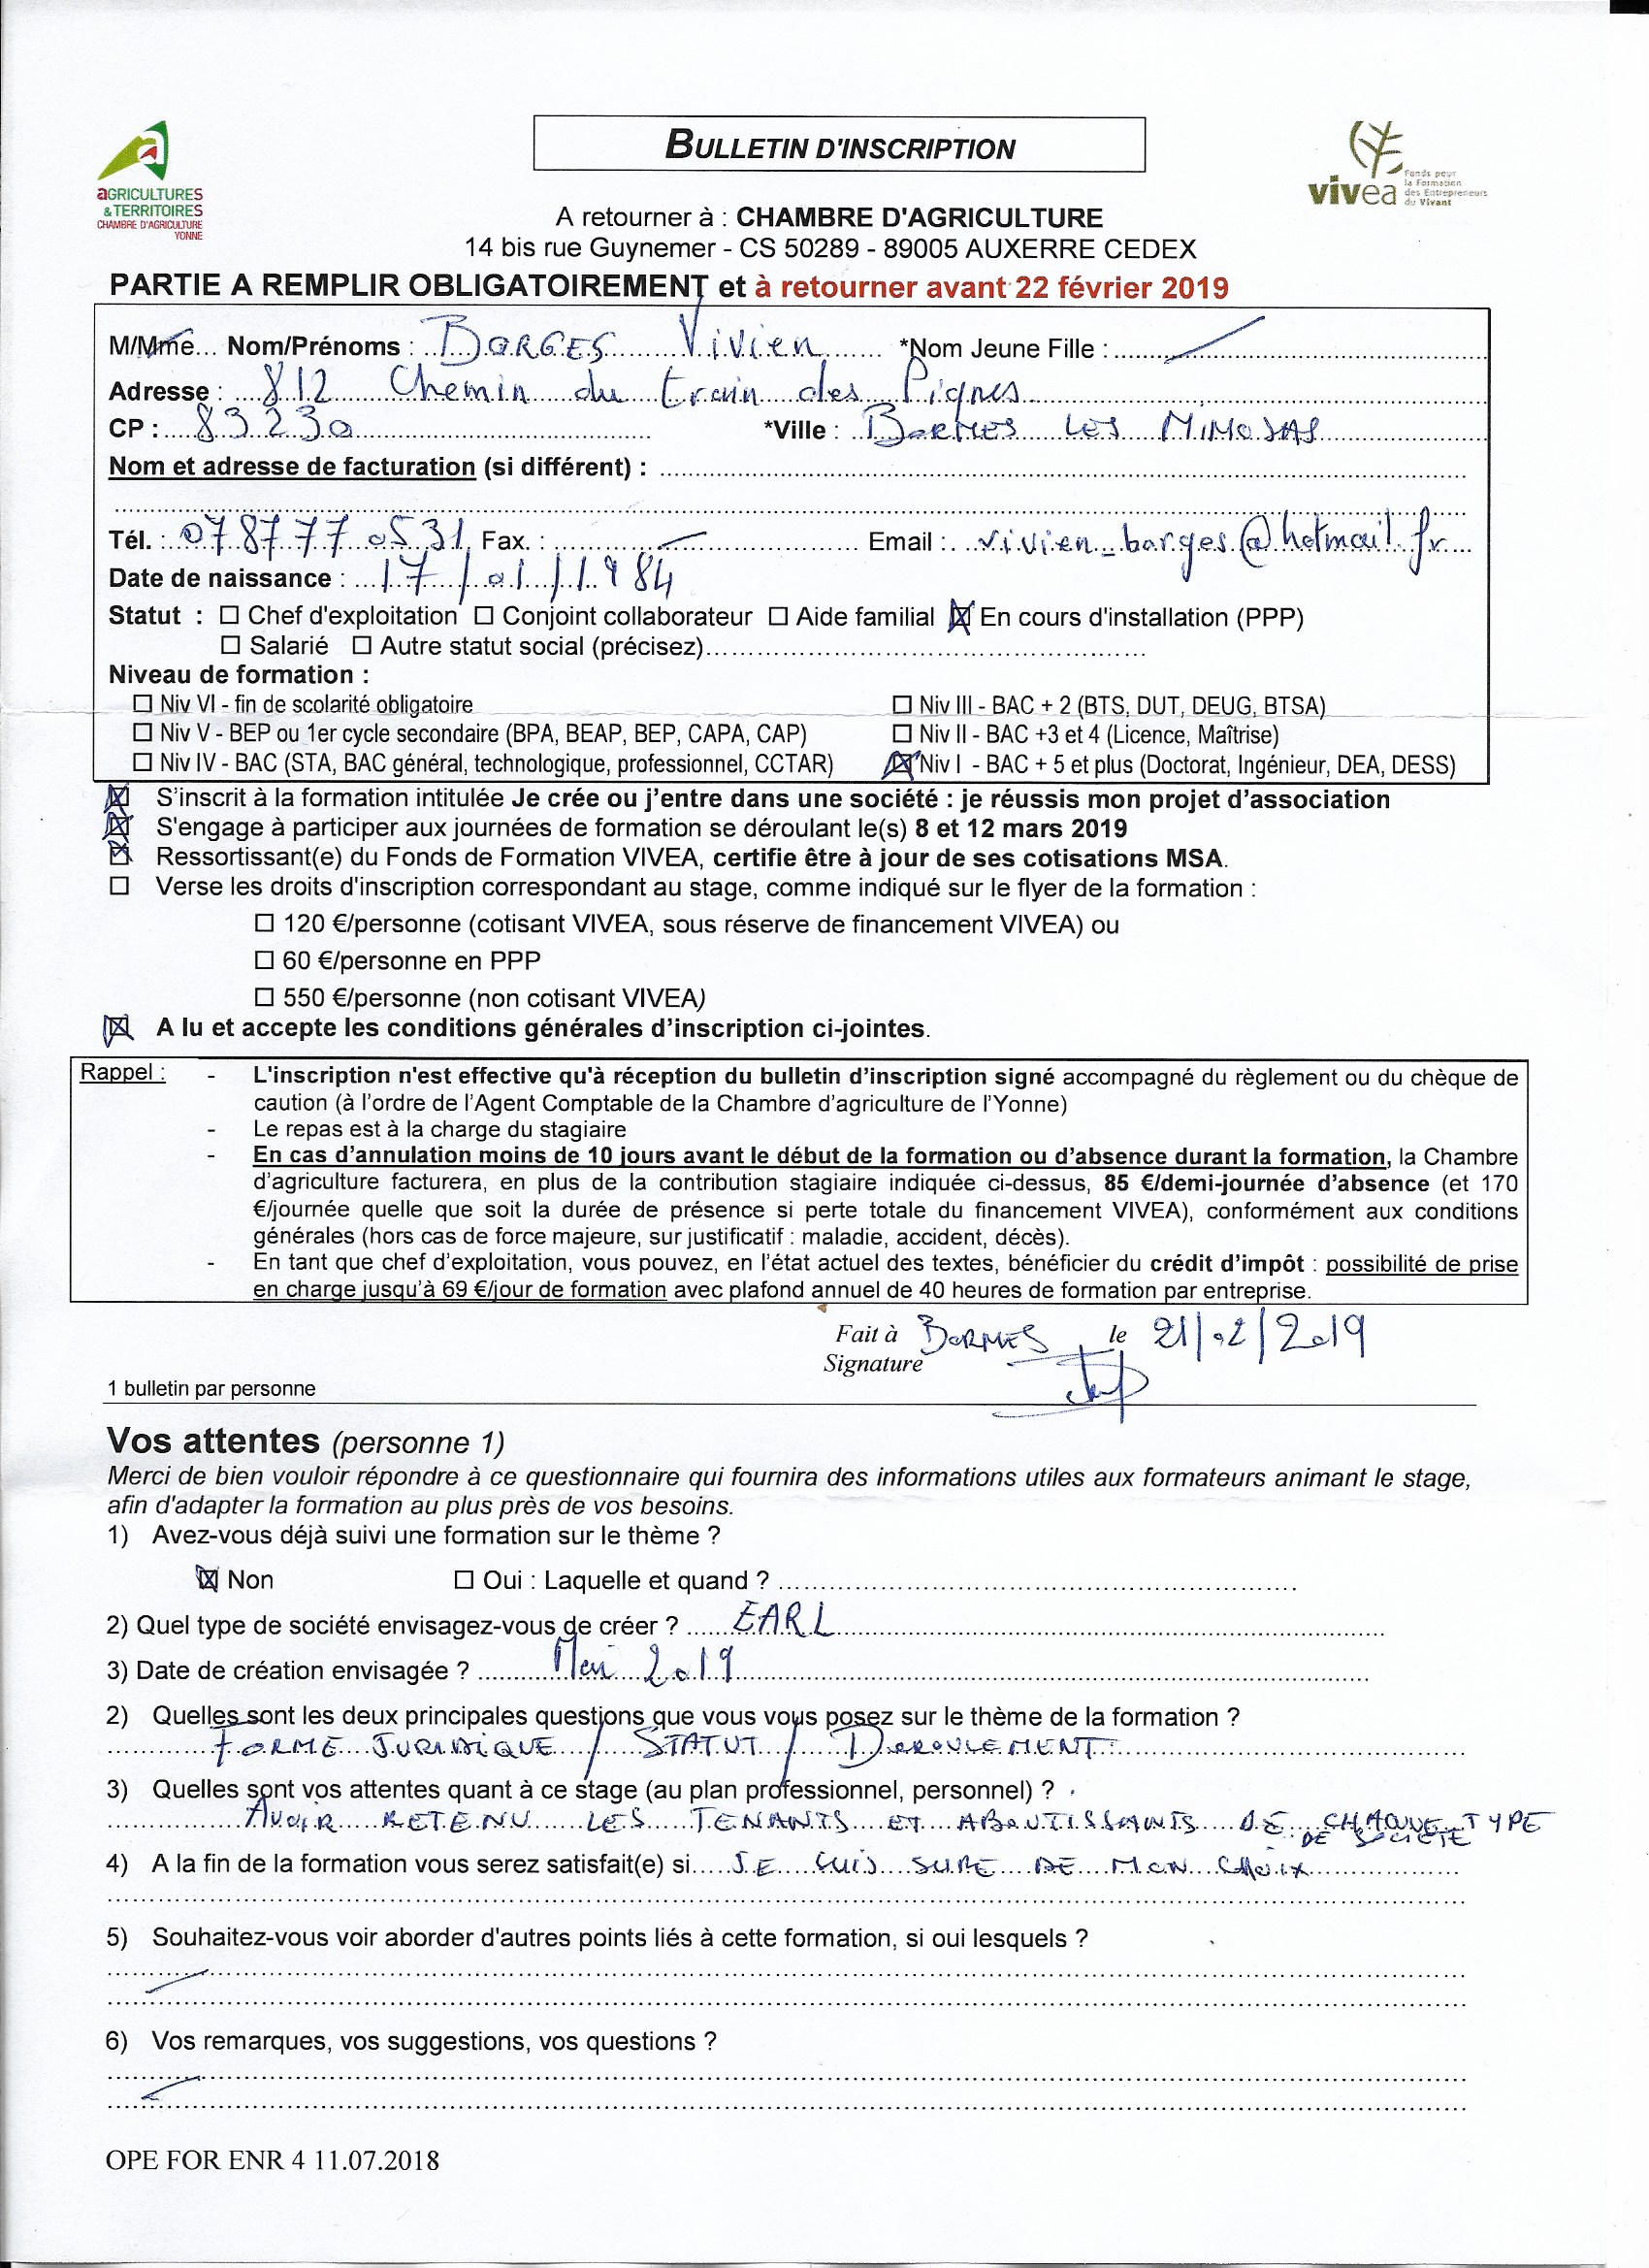 BULLETIN D'INSCRIPTION
aGRICULTURES
& TERRITOIRES
CHAMBRE D'AGRICULTURE
YONNE
vivea
Fonds pour
la Formation
des Entrepreneurs
du Vivant
A retourner à : CHAMBRE D'AGRICULTURE
14 bis rue Guynemer - CS 50289 - 89005 AUXERRE CEDEX
PARTIE A REMPLIR OBLIGATOIREMENT et à retourner avant 22 février 2019
M/Mme... Nom/Prénoms : BORGES Vivien *Nom Jeune Fille :
Adresse : 812 Chemin du train des Pignes
CP : 83230 *Ville : BORMES LES MIMOSAS
Nom et adresse de facturation (si différent) :
Tél. : 07 87 77 05 31 Fax. : Email : vivien_borges@hotmail.fr
Date de naissance : 17/01/1984
Statut : ☐ Chef d'exploitation ☐ Conjoint collaborateur ☐ Aide familial ☒ En cours d'installation (PPP)
☐ Salarié ☐ Autre statut social (précisez)
Niveau de formation :
☐ Niv VI - fin de scolarité obligatoire ☐ Niv III - BAC + 2 (BTS, DUT, DEUG, BTSA)
☐ Niv V - BEP ou 1er cycle secondaire (BPA, BEAP, BEP, CAPA, CAP) ☐ Niv II - BAC +3 et 4 (Licence, Maîtrise)
☐ Niv IV - BAC (STA, BAC général, technologique, professionnel, CCTAR) ☒ Niv I - BAC + 5 et plus (Doctorat, Ingénieur, DEA, DESS)
☒ S'inscrit à la formation intitulée Je crée ou j'entre dans une société : je réussis mon projet d'association
☒ S'engage à participer aux journées de formation se déroulant le(s) 8 et 12 mars 2019
☒ Ressortissant(e) du Fonds de Formation VIVEA, certifie être à jour de ses cotisations MSA.
☐ Verse les droits d'inscription correspondant au stage, comme indiqué sur le flyer de la formation :
☐ 120 €/personne (cotisant VIVEA, sous réserve de financement VIVEA) ou
☐ 60 €/personne en PPP
☐ 550 €/personne (non cotisant VIVEA)
☒ A lu et accepte les conditions générales d'inscription ci-jointes.
Rappel : - L'inscription n'est effective qu'à réception du bulletin d'inscription signé accompagné du règlement ou du chèque de
caution (à l'ordre de l'Agent Comptable de la Chambre d'agriculture de l'Yonne)
- Le repas est à la charge du stagiaire
- En cas d'annulation moins de 10 jours avant le début de la formation ou d'absence durant la formation, la Chambre
d'agriculture facturera, en plus de la contribution stagiaire indiquée ci-dessus, 85 €/demi-journée d'absence (et 170
€/journée quelle que soit la durée de présence si perte totale du financement VIVEA), conformément aux conditions
générales (hors cas de force majeure, sur justificatif : maladie, accident, décès).
- En tant que chef d'exploitation, vous pouvez, en l'état actuel des textes, bénéficier du crédit d'impôt : possibilité de prise
en charge jusqu'à 69 €/jour de formation avec plafond annuel de 40 heures de formation par entreprise.
Fait à BORMES le 21/02/2019
Signature
1 bulletin par personne
Vos attentes (personne 1)
Merci de bien vouloir répondre à ce questionnaire qui fournira des informations utiles aux formateurs animant le stage,
afin d'adapter la formation au plus près de vos besoins.
1) Avez-vous déjà suivi une formation sur le thème ?
☒ Non ☐ Oui : Laquelle et quand ?
2) Quel type de société envisagez-vous de créer ? EARL
3) Date de création envisagée ? Mai 2019
2) Quelles sont les deux principales questions que vous vous posez sur le thème de la formation ?
FORME JURIDIQUE / STATUT / DEROULEMENT
3) Quelles sont vos attentes quant à ce stage (au plan professionnel, personnel) ?
AVOIR RETENU LES TENANTS ET ABOUTISSANTS DE CHAQUE TYPE
DE SOCIETE
4) A la fin de la formation vous serez satisfait(e) si JE SUIS SURE DE MON CHOIX
5) Souhaitez-vous voir aborder d'autres points liés à cette formation, si oui lesquels ?
6) Vos remarques, vos suggestions, vos questions ?
OPE FOR ENR 4 11.07.2018